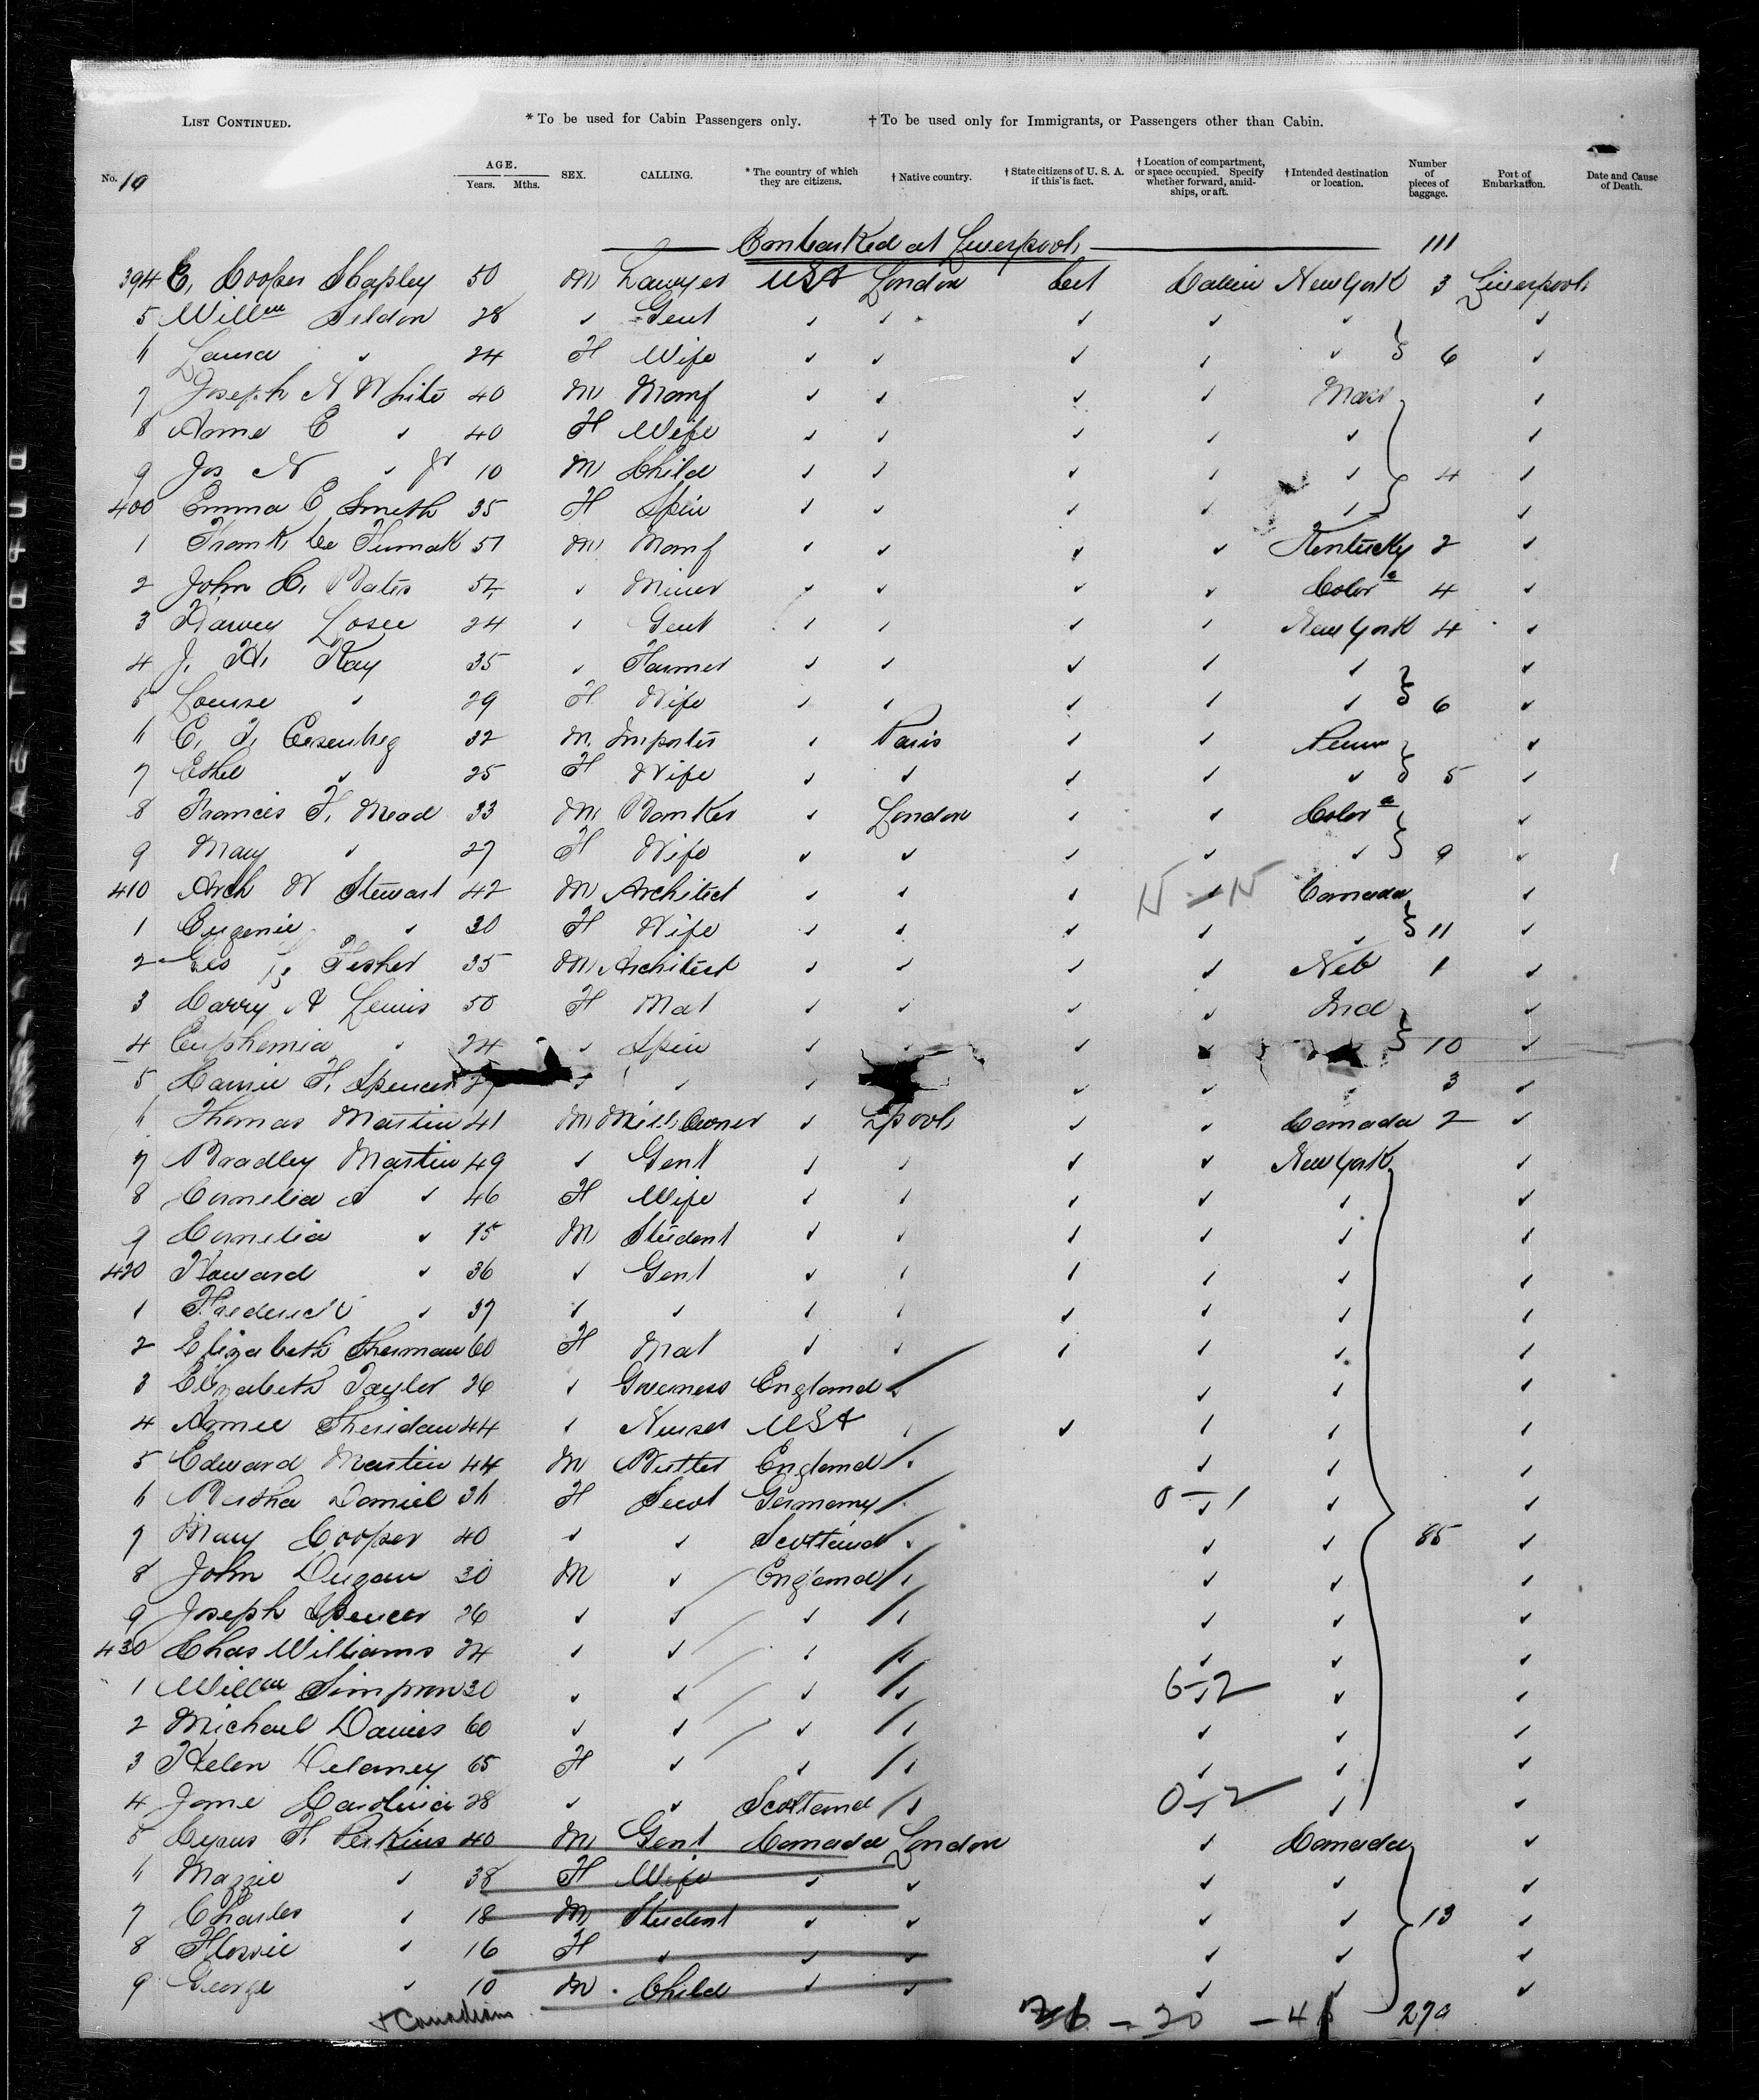 LIST CONTINUED. * To be used for Cabin Passengers only. † To be used only for Immigrants, or Passengers other than Cabin.
No. 10 AGE. Years. Mths. SEX. CALLING. * The country of which they are citizens. † Native country. † State citizens of U. S. A. if this is fact. † Location of compartment, or space occupied. Specify whether forward, amidships, or aft. † Intended destination or location. Number of pieces of baggage. Port of Embarkation. Date and Cause of Death.
Embarked at Liverpool 111
394 E. Cooper Shapley 50 M Lawyer USA London Cabin New York 3 Liverpool
5 Willm Seldon 28 ✓ Gent ✓ ✓ ✓ ✓ ✓ ✓
6 Laura ✓ 24 F Wife ✓ ✓ ✓ ✓ ✓ 6 ✓
7 Joseph N White 40 M Manf ✓ ✓ ✓ ✓ Mass ✓
8 Anne E ✓ 40 F Wife ✓ ✓ ✓ ✓ ✓ ✓
9 Jos N ✓ Jr 10 M Child ✓ ✓ ✓ ✓ ✓ 4 ✓
400 Emma E Smith 35 F Spin ✓ ✓ ✓ ✓ ✓ ✓
1 Frank 51 M Manf ✓ ✓ ✓ ✓ Kentucky 2 ✓
2 John C. Bates 54 ✓ Miner ✓ ✓ ✓ ✓ Colora 4 ✓
3 Harvey Losee 24 ✓ Gent ✓ ✓ ✓ ✓ New York 4 ✓
4 J. H. Kay 35 ✓ Farmer ✓ ✓ ✓ ✓ ✓ ✓
5 Louise ✓ 29 F Wife ✓ ✓ ✓ ✓ ✓ 6 ✓
6 C. F. 32 M Importer ✓ Paris ✓ ✓ Penn ✓
7 Ethel ✓ 25 F Wife ✓ ✓ ✓ ✓ ✓ 5 ✓
8 Francis F. Mead 33 M Banker ✓ London ✓ ✓ Colora ✓
9 Mary ✓ 27 F Wife ✓ ✓ ✓ ✓ ✓ 9 ✓
410 Arch W Stewart 42 M Architect ✓ ✓ ✓ ✓ Canada ✓
1 Eugenie ✓ 30 F Wife ✓ ✓ ✓ ✓ ✓ 11 ✓
2 Geo Fisher 35 M Architect ✓ ✓ ✓ ✓ Neb 1 ✓
3 Carry A Lewis 50 F Mat ✓ ✓ ✓ ✓ Ind ✓
4 Euphemia ✓ 24 ✓ Spin ✓ ✓ ✓ ✓ 10 ✓
5 F. Spencer ✓ ✓ ✓ ✓ ✓ ✓ 3 ✓
6 Thomas Martin 41 M Mill Owner ✓ Lpool ✓ ✓ Canada 2 ✓
7 Bradley Martin 49 ✓ Gent ✓ ✓ ✓ ✓ New York ✓
8 Cornelia ✓ 46 F Wife ✓ ✓ ✓ ✓ ✓ ✓
9 Cornelia ✓ 15 M Student ✓ ✓ ✓ ✓ ✓ ✓
420 Howard ✓ 36 ✓ Gent ✓ ✓ ✓ ✓ ✓ ✓
1 Frederick ✓ 37 ✓ ✓ ✓ ✓ ✓ ✓ ✓ ✓
2 Elizabeth Sherman 60 F Mat ✓ ✓ ✓ ✓ ✓ ✓
3 Elizabeth Taylor 26 ✓ Governess England ✓ ✓ ✓ ✓
4 Annie Sheridan 44 ✓ Nurse USA ✓ ✓ ✓ ✓ ✓
5 Edward Martin 44 M Butler England ✓ ✓ ✓ ✓
6 Bertha Daniel 36 F Servt Germany ✓ 0-1 ✓ ✓
7 Mary Cooper 40 ✓ ✓ Scotland ✓ ✓ ✓ 85 ✓
8 John Dugan 30 M ✓ England ✓ ✓ ✓ ✓
9 Joseph Spencer 26 ✓ ✓ ✓ ✓ ✓ ✓ ✓
430 Chas Williams 24 ✓ ✓ ✓ ✓ ✓ ✓ ✓
1 Willm Simpson 30 ✓ ✓ ✓ ✓ 6-2 ✓ ✓
2 Michael Davies 60 ✓ ✓ ✓ ✓ ✓ ✓ ✓
3 Helen Delaney 65 F ✓ ✓ ✓ ✓ ✓ ✓
4 Jane 28 ✓ ✓ Scotland ✓ 0-2 ✓ ✓
5 Cyrus F. Perkins 40 M Gent Canada London ✓ Canada ✓
6 Maggie ✓ 38 F Wife ✓ ✓ ✓ ✓ ✓
7 Charles ✓ 18 M Student ✓ ✓ ✓ ✓ 13 ✓
8 Flossie ✓ 16 F ✓ ✓ ✓ ✓ ✓ ✓
9 George ✓ 10 M Child ✓ ✓ ✓ ✓ ✓
+ Canadians 36 - 30 279